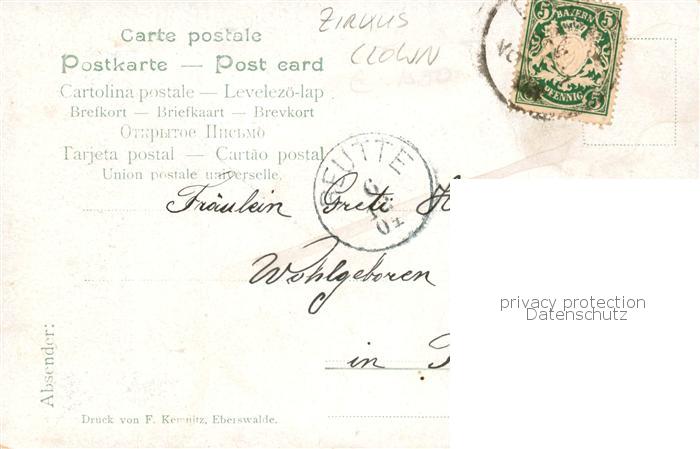 ZIRKUS
CLOWN
Carte postale
Postkarte — Post card
Cartolina postale — Levelező-lap
Brefkort — Briefkaart — Brevkort
Открытое Письмо
Tarjeta postal — Cartão postal
Union postale universelle.
5 BAYERN 5
PFENNIG 5
REUTTE
6
04
Fräulein Grete
Wohlgeboren
in
privacy protection
Datenschutz
Absender:
Druck von F. Kemnitz, Eberswalde.